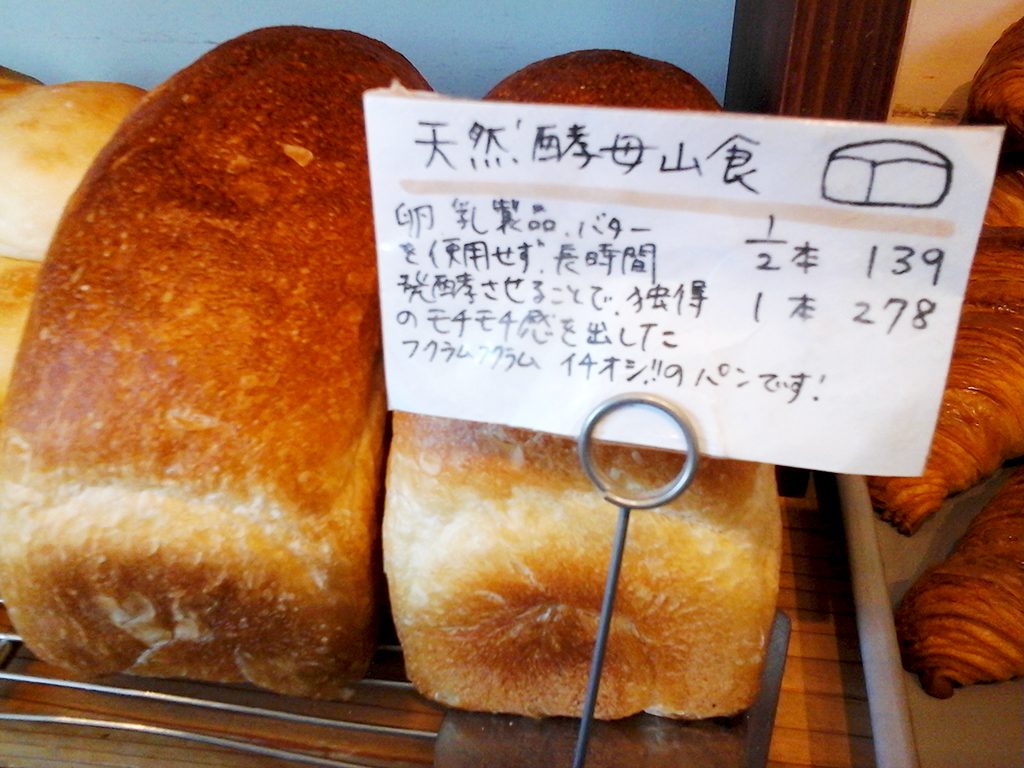 天然酵母山食
卵 乳製品、バター
を使用せず、長時間
発酵させることで、独得
のモチモチ感を出した
フクラムフクラム イチオシ!!のパンです!
1/2本 139
1本 278